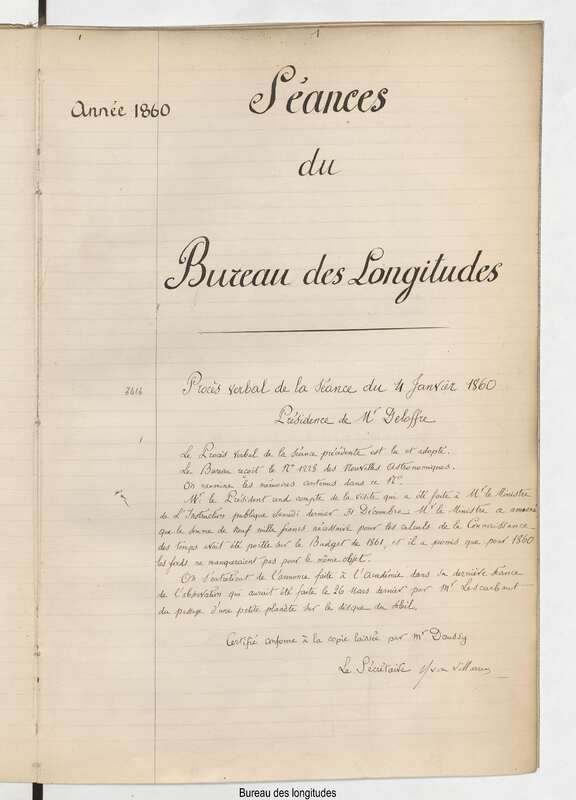 Année 1860
Séances
du
Bureau des Longitudes
Procès verbal de la Séance du 4 Janvier 1860
Présidence de Mr Deloffre
Le Procès verbal de la séance précédente est lu et adopté.
Le Bureau reçoit le No 1228 des Nouvelles Astronomiques.
On examine les mémoires contenus dans ce No.
Mr. le Président rend compte de la visite qui a été faite à Mr le Ministre
de l'Instruction publique samedi dernier 31 Décembre. Mr le Ministre a annoncé
que la somme de neuf mille francs nécessaire pour les calculs de la Connaissance
des temps avait été portée sur le Budget de 1861, et il a promis que pour 1860
les fonds ne manqueraient pas pour le même objet.
On s'entretient de l'annonce faite à l'Académie dans sa dernière séance
de l'observation qui aurait été faite le 26 Mars dernier par Mr Lescarbault
du passage d'une petite planète sur le disque du Soleil.
Certifié conforme à la copie laissée par Mr Daussy
Le Sécrétaire Yvon Villarceau
Bureau des longitudes